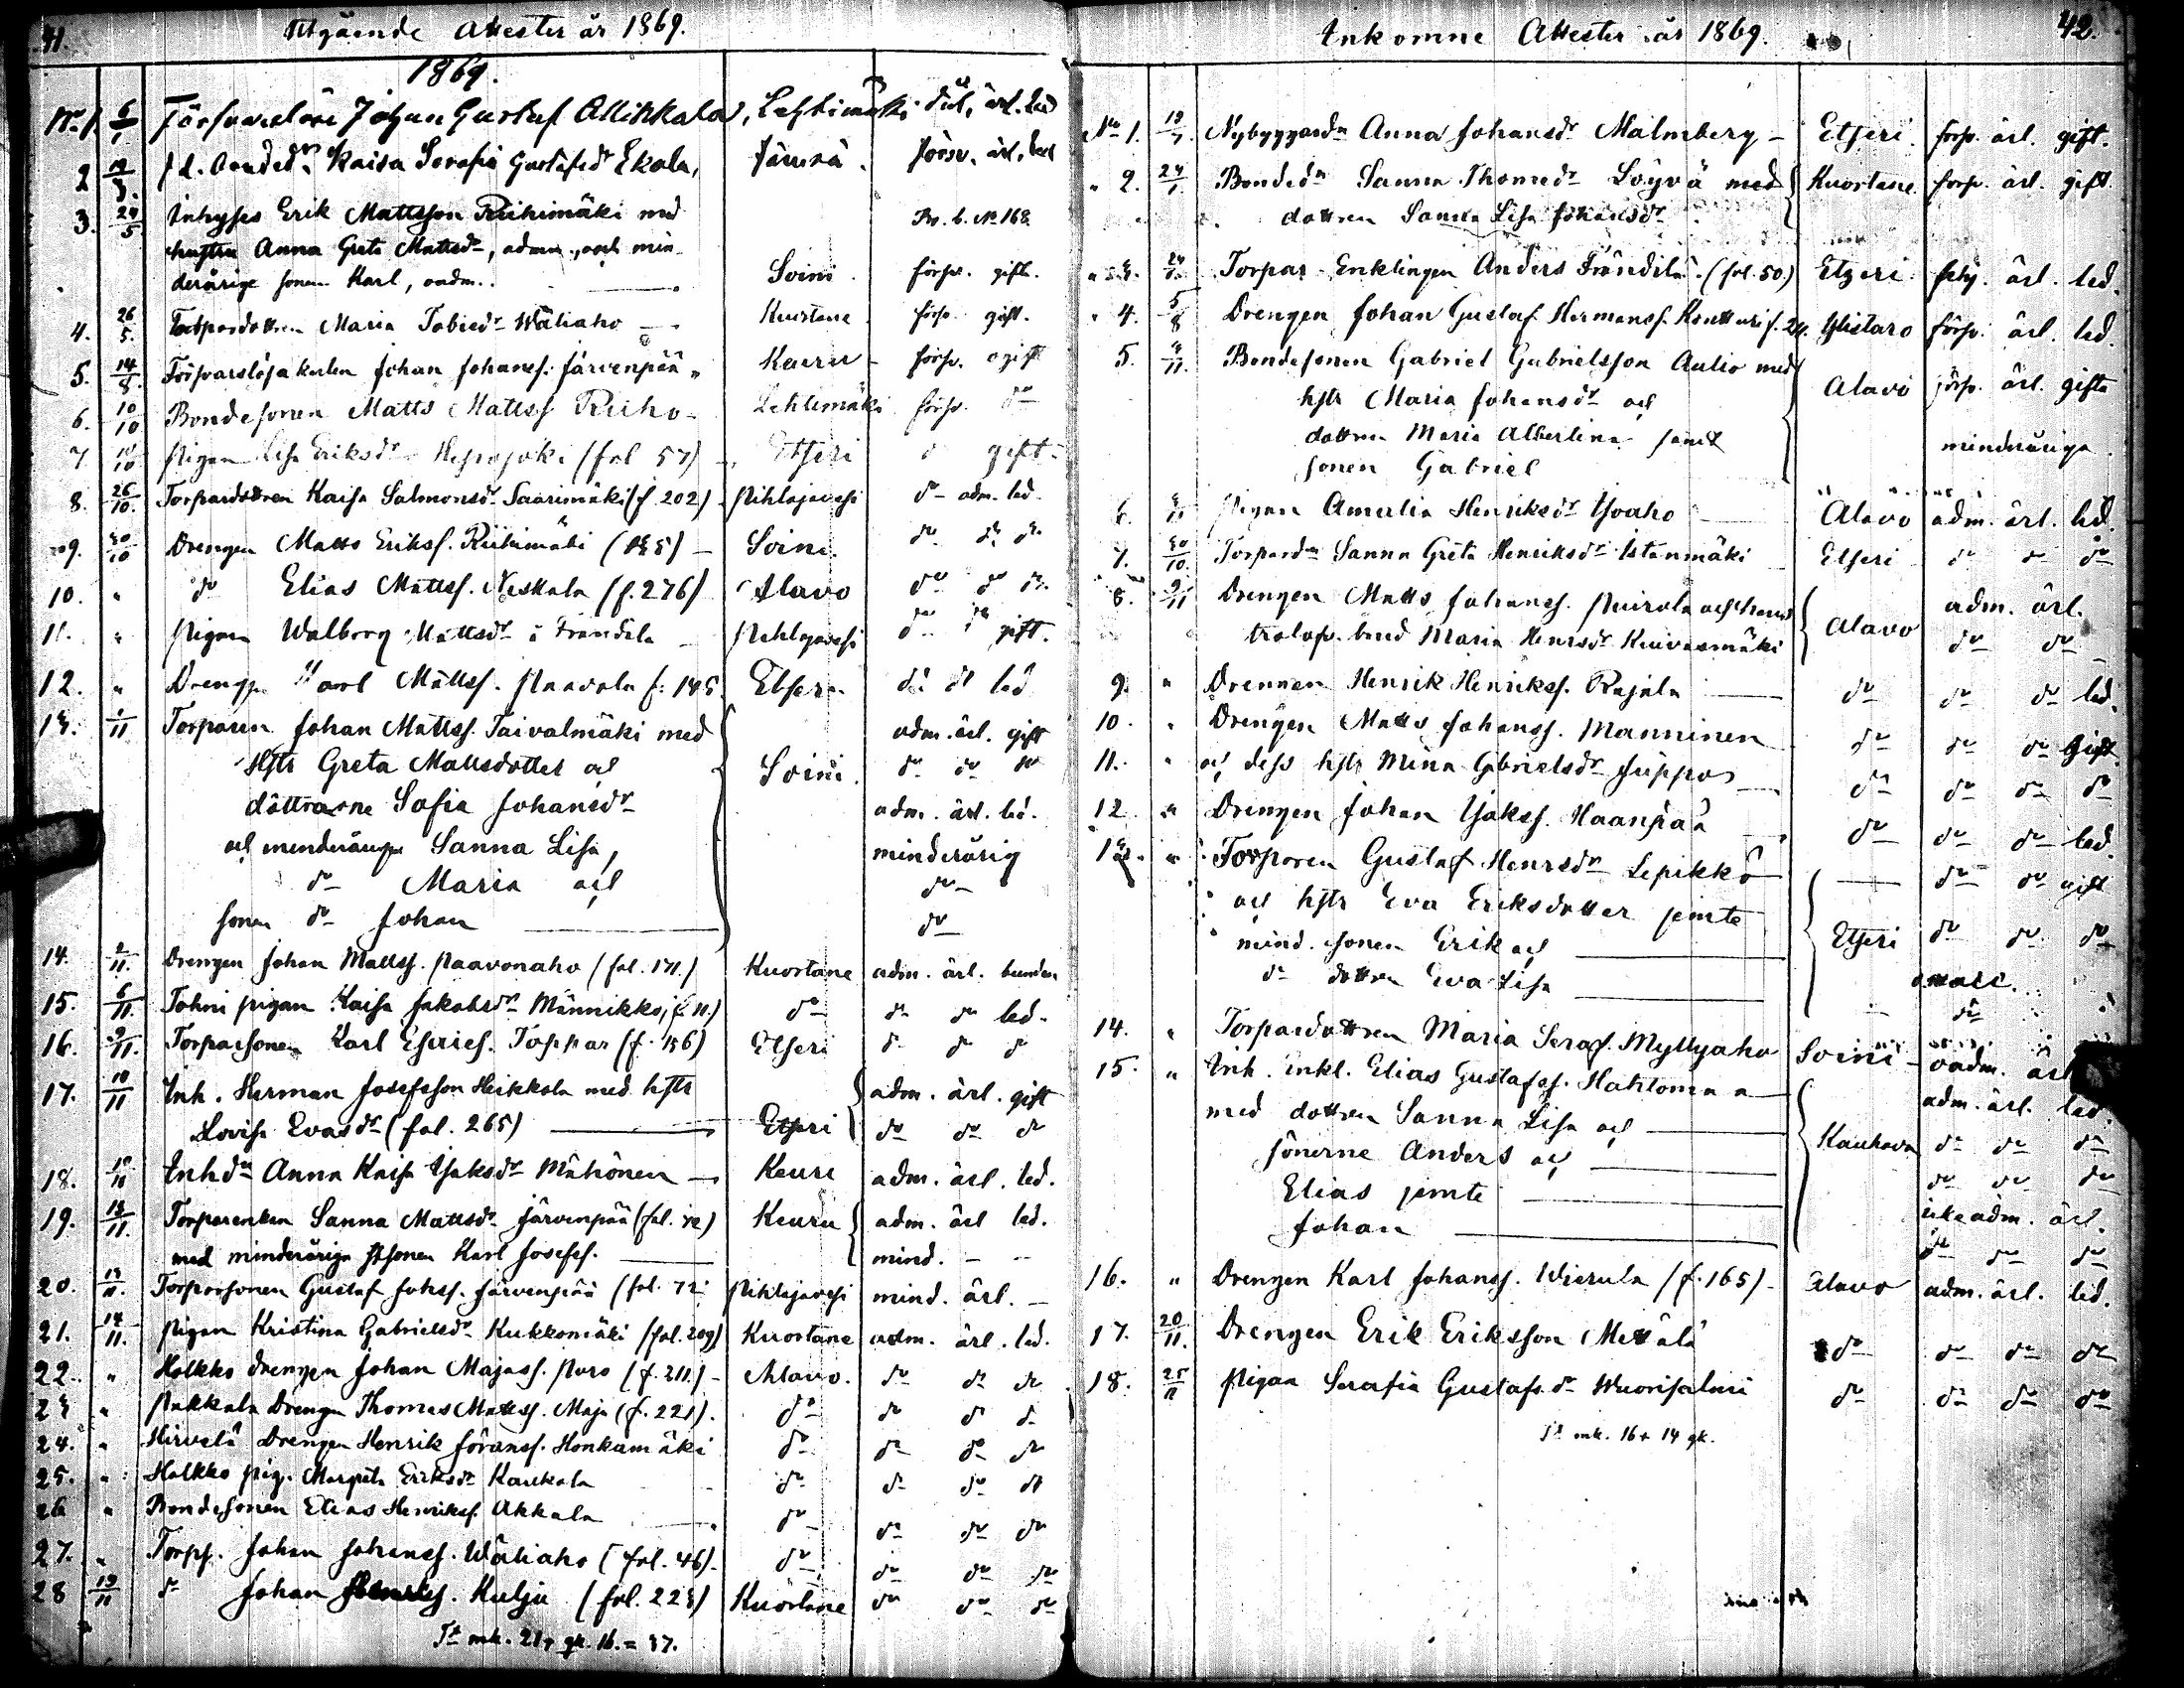 41.
Utgående Attester år 1869.
1869.
No 1. 6/1 Försvarslöse Johan Gustaf Allikkala, Lehtimäki ärl. led
2 19/3. f.d. bonded. Kaisa Serafia Gustafsdr Ekola, Jämsä. försv. ärl. led
3. 24/5 Inhyses Erik Mattsson Riihimäki med Pr. b. No 168
hustru Anna Greta Mattsdr, adm., och min-
derårige sonen Karl, oadm. Soini. försv. gifte.
4. 26/5. Torpardottren Maria Tobiedr Wäliaho Kuortane försv. gift.
5. 14/8. Försvarslösa karlen Johan Johanss. Järvenpää Keuru försv. ogift
6. 10/10 Bondesonen Matts Mattss. Riiho Lehtimäki försv. do
7. 14/10 Pigan Lisa Eriksdr Hepojoki (fol 57) Etseri d gift.
8. 26/10. Torpardottren Kaisa Salmonsdr Saarimäki (f. 202) Pihlajavesi do adm. led.
9. 30/10 Drengen Matts Erikss. Riihimäki (185) Soini. do do do
10. " do Elias Mattss. Neskala (f. 276) Alavo do do do
11. " Pigan Walborg Mattsdr Frändilä Pihlajavesi do do gift.
12. " Drengen Karl Mattss. Paavola f. 145 Etseri do do led
13. 1/11 Torparen Johan Mattss. Taivalmäki med adm. ärl. gift
Hstr Greta Mattsdotter och Soini. do do do
döttrarne Sofia Johansdr adm. ärl. led.
och minderåriga Sanna Lisa, minderårig
do Maria och do
sonen do Johan do
14. 2/11. Drengen Johan Mattss. Paavonaho (fol. 171.) Kuortane adm. ärl. bunden
15. 6/11. Tohni pigan Kaisa Jakobsdr Männikkö, (f. 11.) do do do led.
16. 9/11. Torparsonen Karl Esaies. Toppar (f. 156) Etseri do do do
17. 10/11 Inh. Herman Josefsson Heikkola med hstr adm. ärl. gift
Lovisa Evasdr (fol. 265) Etseri do do do
18. 10/11 Inhdn Anna Kaisa Isaksdr Mähönen Keuru adm. ärl. led.
19. 13/11. Torparenkan Sanna Mattsdr Järvenpää (fol. 72) Keuru adm. ärl led.
med minderåriga sonen Karl Josefss. mind.
20. 13/11. Torparsonen Gustaf Johss. Järvenpää (fol. 72 Pihlajavesi mind. ärl.
21. 14/11. Pigan Kristina Gabrielsdr Kukkomäki (fol. 209) Kuortane adm. ärl. led.
22. " Holkko drengen Johan Majass. Puro (f. 211.) Alavo. do do do
23 " Pukkala Drengen Thomas Mattss. Maja (f. 221). do do do do
24. " Hirvelä Drengen Henrik Johanss. Honkamäki do do do do
25. " Holkko pig. Margeta Eriksdr Kaukola do do do do
26 " Bondesonen Elias Henrikss. Akkala do do do do
27. " Torps. Johan Johanss. Wäliaho (fol. 46) do do do do
28 19/11 do Johan Kulju (fol. 223) Kuortane do do do
Sa mk. 21+ qk. 16. = 37.
42.
Inkomne Attester år 1869.
No 1. Nybyggardn Anna Johansdr Malmberg Etseri. försv. ärl. gift.
" 2. 24/1. Bondedn Sanna Thomsdr Löyvä med Kuortane försv. ärl. gift
dottren Sanna Lisa Johansdr
" 3. Torpar-Enklingen Anders Frändilä (fol. 50) Etzeri ärl. led.
" 4. 5/8 Drengen Johan Gustaf Hermanss. Konttori f. 24. Ylistaro försv. ärl. led.
5. Bondesonen Gabriel Gabrielsson Aulio med Alavo försv. ärl. gifta
hstr Maria Johansdr och
dottren Maria Albertina samt minderåriga
sonen Gabriel
6. Pigan Amalia Henriksdr Isoaho Alavo adm. ärl. led.
7. 30/10. Torpardn Sanna Greta Henriksdr Istanmäki Etseri do do do
8. 9/11 Drengen Matts Johanss. Puirola och hans Alavo adm. ärl.
trolofv. brud Maria Henrsdr Kuivasmäki do do
9. " Drennen Henrik Henrikss. Rajala do do do led.
10. " Drengen Matts Johanss. Manninen do do do gift.
11. " och dess hstr Mina Gabrielsdr Juppo do do do do
12 " Drengen Johan Isakss. Haanpää do do do led.
13. " Torparen Gustaf Henrsdr Lepikkö do do gift
och hstr Eva Eriksdotter jemte Etseri do do do
mind. sonen Erik och
do dottren Eva Lisa do
14. " Torpardottren Maria Seraf. Myllyaho Soini oadm. ärl
15. " Inh. enkl. Elias Gustafss. Hahtomaa adm. ärl. led.
med dottren Sanna Lisa och Kauhava do do do
sönerne Anders och do do do
Elias jemte icke adm. ärl.
Johan do do do
16. " Drengen Karl Johanss. Wierula (f. 165) Alavo adm. ärl. led.
17. 20/11. Drengen Erik Eriksson Mettälä do do do do
18. 25/11 Pigan Serafia Gustafsdr Wuorisalmi do do do do
Sa mk. 16+ 14 qk.